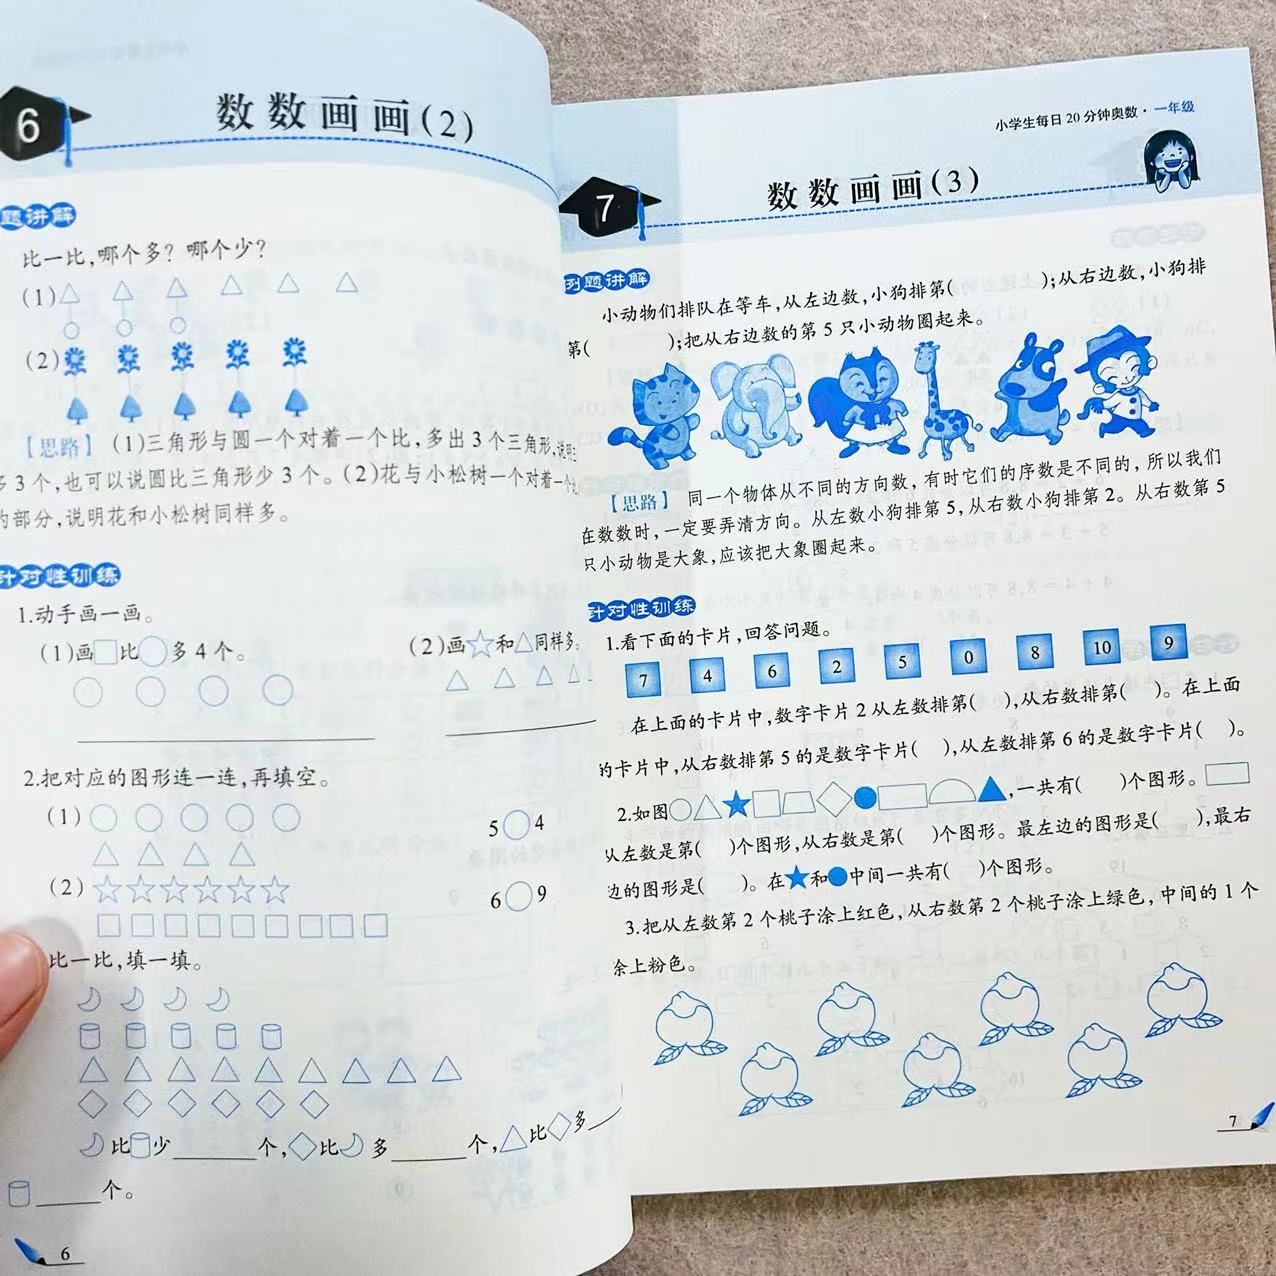 6
数数画画(2)
题讲解
比一比,哪个多?哪个少?
(1)
(2)
【思路】 (1)三角形与圆一个对着一个比,多出3个三角形,说明
多3个,也可以说圆比三角形少3个。(2)花与小松树一个对着一个
的部分,说明花和小松树同样多。
针对性训练
1.动手画一画。
(1)画□比○多4个。
(2)画☆和△同样多。
2.把对应的图形连一连,再填空。
(1)
5○4
(2)
6○9
比一比,填一填。
比 少______个,◇比 多______个,△比◇多__
______个。
6
小学生每日20分钟奥数·一年级
7
数数画画(3)
例题讲解
小动物们排队在等车,从左边数,小狗排第( );从右边数,小狗排
第( );把从右边数的第5只小动物圈起来。
【思路】 同一个物体从不同的方向数,有时它们的序数是不同的,所以我们
在数数时,一定要弄清方向。从左数小狗排第5,从右数小狗排第2。从右数第5
只小动物是大象,应该把大象圈起来。
针对性训练
1.看下面的卡片,回答问题。
7 4 6 2 5 0 8 10 9
在上面的卡片中,数字卡片2从左数排第( ),从右数排第( )。在上面
的卡片中,从右数排第5的是数字卡片( ),从左数排第6的是数字卡片( )。
2.如图○△★□ ◇● ▲,一共有( )个图形。
从左数是第( )个图形,从右数是第( )个图形。最左边的图形是( ),最右
边的图形是( )。在★和●中间一共有( )个图形。
3.把从左数第2个桃子涂上红色,从右数第2个桃子涂上绿色,中间的1个
涂上粉色。
7